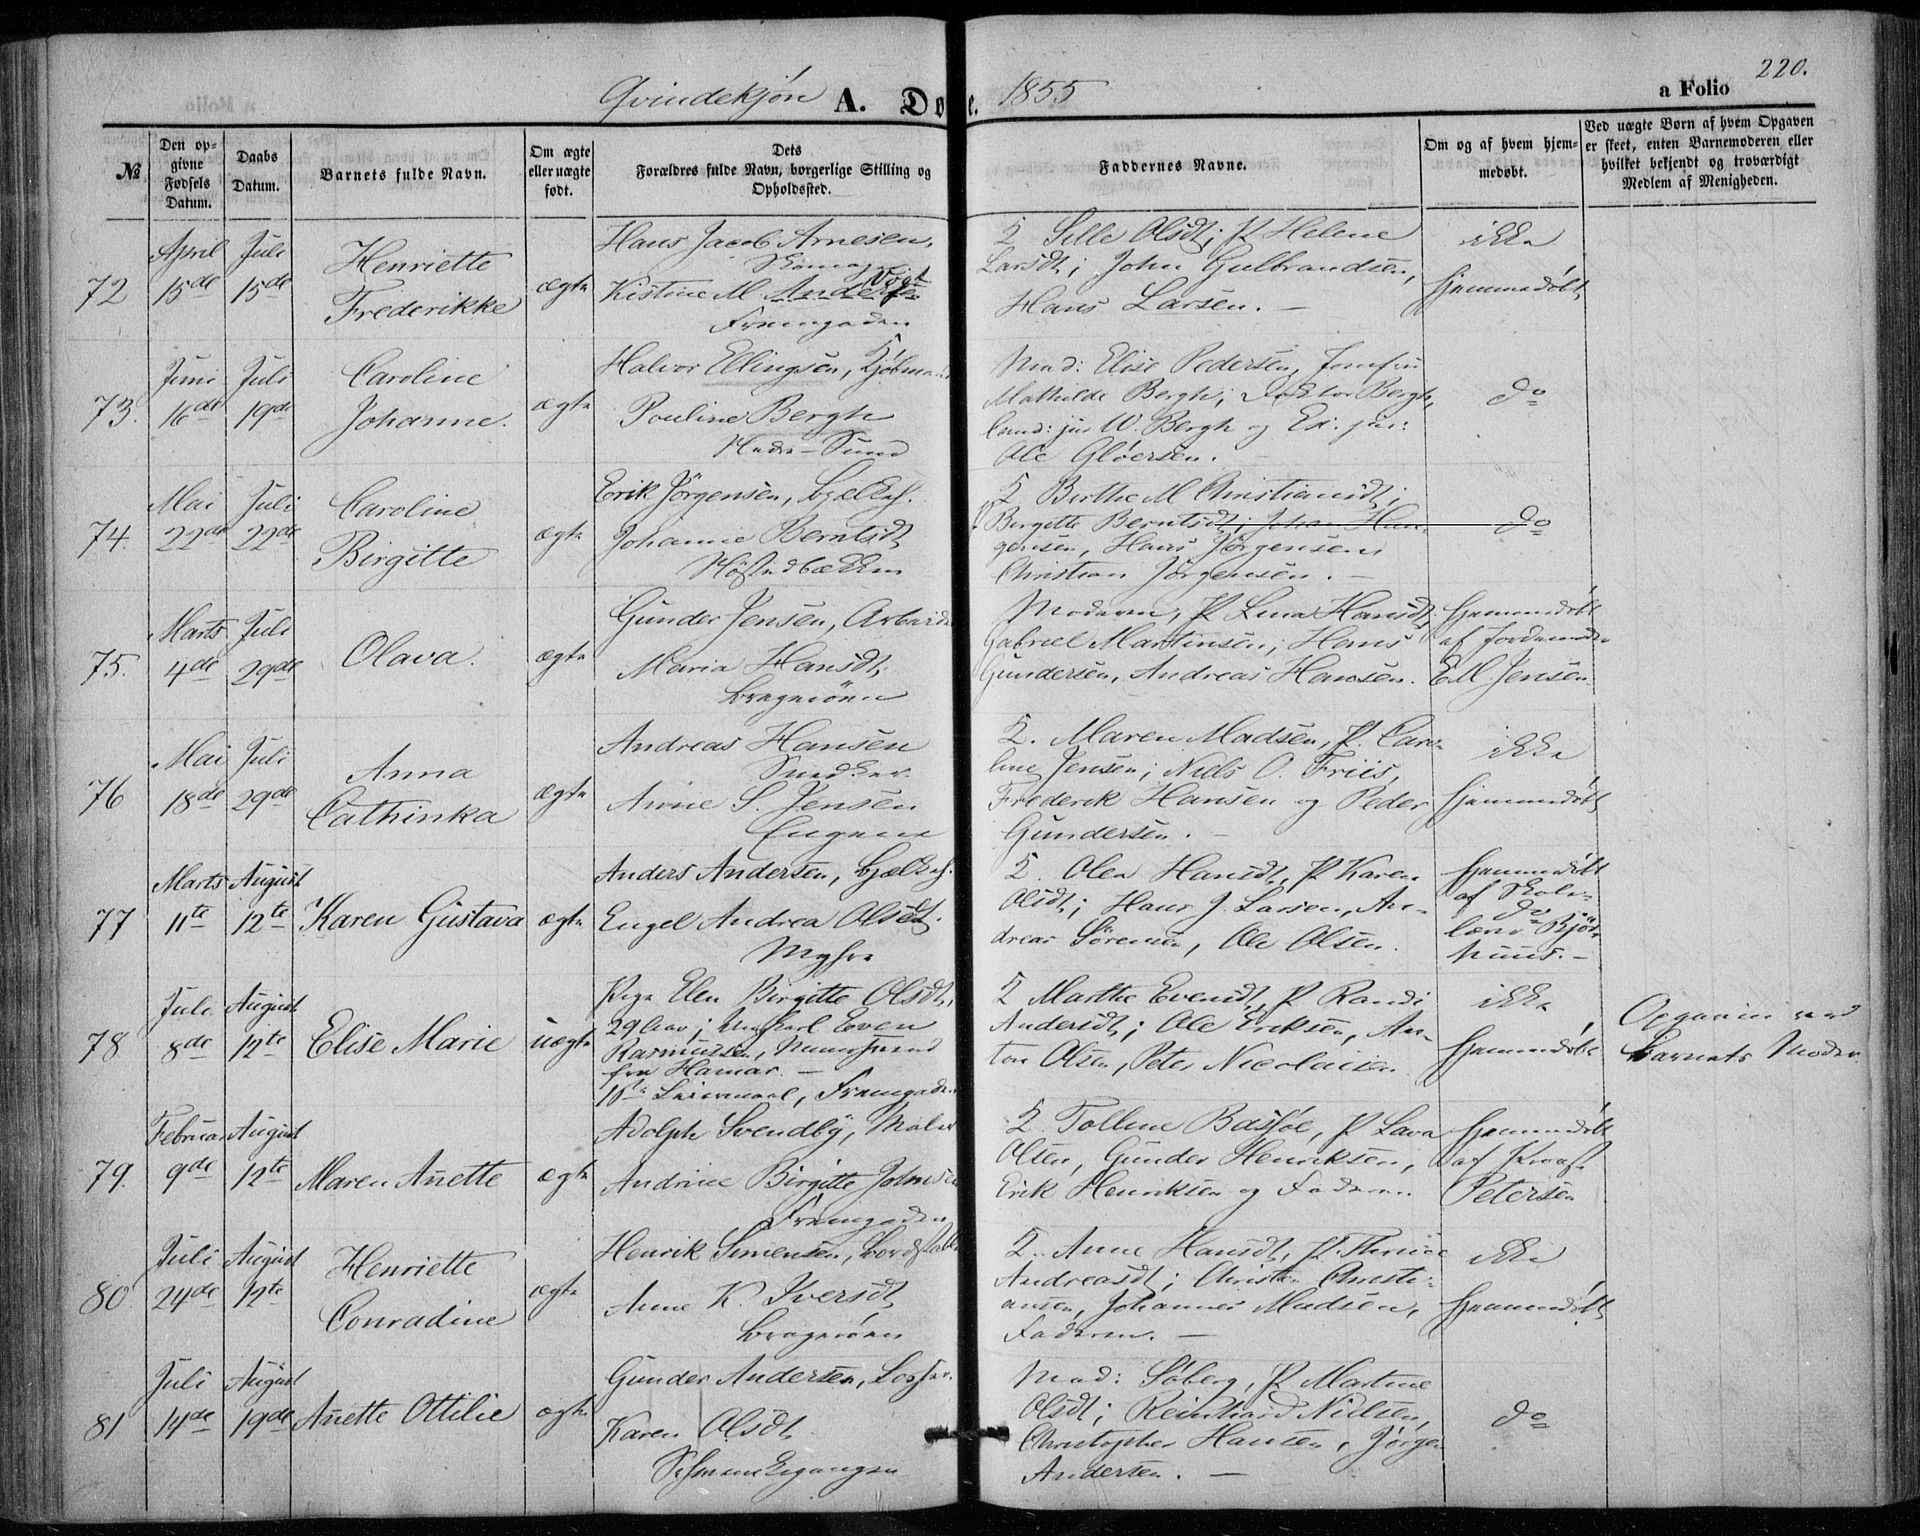 Qvindekjøn A. Dø e. 1855 a Folio 220.
№
Den op-
givne
Fødsels
Datum.
Daabs
Datum.
Barnets fulde Navn.
Om ægte
eller uægte
født.
Dets
Forældres fulde Navn, borgerlige Stilling og
Opholdssted.
Faddernes Navne.
Om og af hvem hjem-
medøbt.
Ved uægte Børn af hvem Opgaven
er skeet, enten Barnemoderen eller
hvilket bekjendt og troværdigt
Medlem af Menigheden.
72
April
15de
Juli
15de
Henriette
Frederikke
ægte
Hans Jacob Arnesen,
Skomag
Kistine M. Voigt
Fremgaden
Sille Olsdt; P Helene
Larsdt; John Gulbrandsen,
Hans Larsen. —
ikke
hjemmedøbt
73.
Juni
16de
Juli
19de
Caroline
Johanne.
ægte
Halvor Ellingsen, Kjøbmand
Pouline Bergh
Sund
Mad: Elise Pedersen, Jomfru
Mathilde Bergh; Doktor Bergh,
Cand: jur W. Bergh og Ex. jur:
Ole Gløersen. —
do
74.
Mai
22de
Juli
22de
Caroline
Birgitte
ægte
Erik Jörgensen, Bjelkeh.
Johanne Berntsdt
Birthe M Christiansdt;
P Birgitte Berntsdt; Johan Han-
gensen, Hans Jörgensen
Christian Jörgensen. —
do
75.
Marts
4de
Juli
29de
Olava.
ægte
Gunder Jensen, Arbeide
Maria Hansdt.
Bragerøen
Moderen, P Lina Hansdt
Gabriel Martinsen; Hans
Gundersen, Andreas Hansen.
hjemmedöbt
af Jordemoder
E M Jensen
76
Mai
18de
Juli
29de
Anna
Cathinka
ægte
Andreas Hansen
Snedker.
Anne S. Jensen
Engene
Maren Madsen, P. Caro-
line Jensen; Niels O. Friis,
Frederik Hansen og Peder
Gundersen. —
ikke
hjemmedøbt
77
Marts
11te
August
12te
Karen Gustava
ægte
Anders Andersen, Bjelkeh.
Engel Andrea Olsdt.
Myhre
Olea Hansdt, P Karen
Olsdt; Hans J. Larsen, An-
dreas Sörensen, Ole Olsen.
hjemmedöbt
af Skole-
78
Juli
8de
August
12te
Elise Marie
uægte
Pige Elen Birgitte Olsdt,
29 Aar; Ungkarl Even
Rasmussen,
fra Hamar. —
1ste Leiermaal, Fremgaden
Marthe Evensdt, P Randi
Andersdt; Ole Eriksen, An-
ton Olsen, Peter Nicolaisen
ikke
hjemmedöbt
Opgaven ved
Barnets Moder
79.
Februar
9de
August
12te
Maren Anette
ægte
Adolph Svendby, Maler
Andrine Birgitte Johnsen
Fremgaden
Tolline Basjöe, P Lava
Olsen, Gunder Henriksen,
Erik Henriksen og Faderen
hjemmedöbt
af
Petersen
80
Juli
24de
August
12te
Henriette
Conradine
ægte
Henrik Simensen,
Anne K. Iversdt
Bragerøen
Anne Hansdt, P. Thrine
Andreasdt; Christen Christi-
ansen, Johannes Madsen,
Faderen. —
ikke
hjemmedöbt
81
Juli
14de
August
19de
Anette Ottilie
ægte
Gunder Andersen, Losser.
Karen Olsdt
Mad: Söberg, P Martine
Olsdt; Reinhard Nielsen,
Christopher Hansen, Jörgen
Andersen. —
do